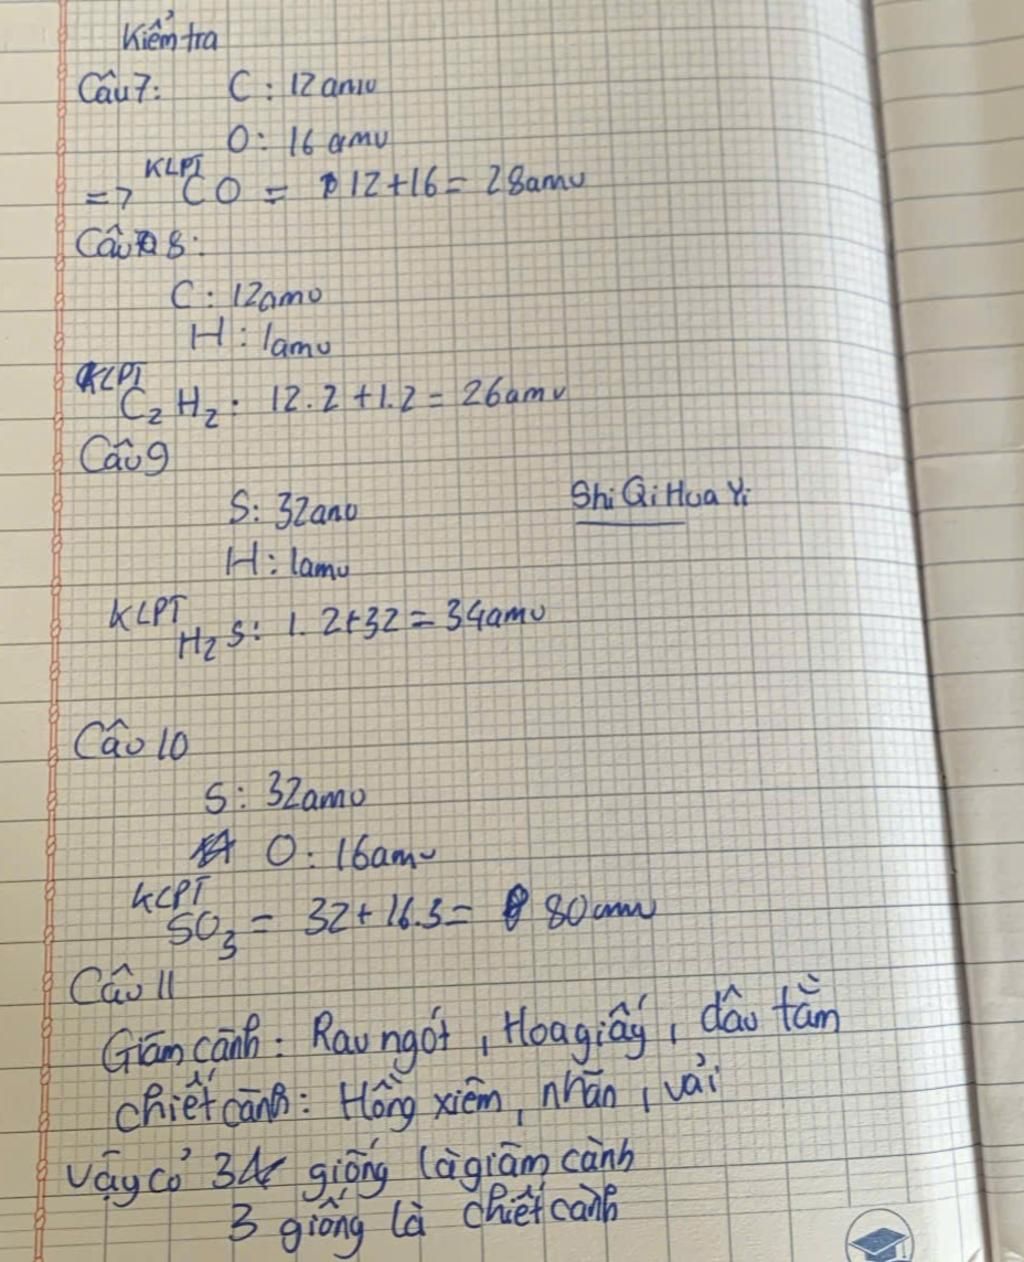 Kiểm tra
Câu 7: C : 12 amu
O : 16 amu
=> KLPT CO = 12 + 16 = 28 amu
Câu 8 :
C : 12 amu
H : 1 amu
KLPT C₂H₂ : 12.2 + 1.2 = 26 amu
Câu 9
S : 32 amu
Shi Qi Hua Yi
H : 1 amu
KLPT H₂S : 1.2 + 32 = 34 amu
Câu 10
S : 32 amu
O : 16 amu
KLPT SO₃ = 32 + 16.3 = 80 amu
Câu 11
Giâm cành : Rau ngót , Hoa giấy , dâu tằm
Chiết cành : Hồng xiêm , nhãn , vải
Vậy có 3 giống là giâm cành
3 giống là chiết cành